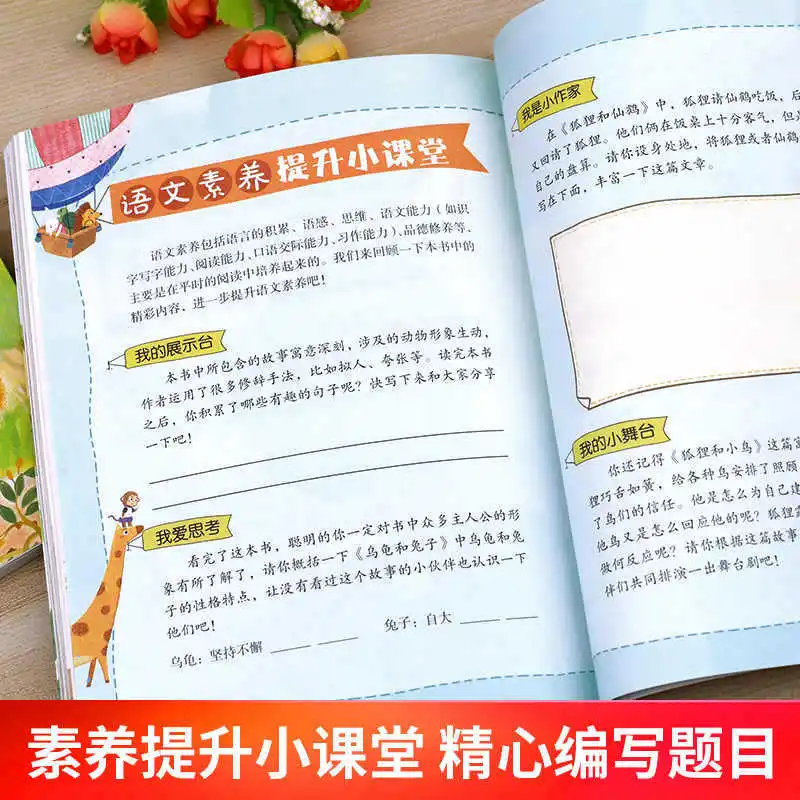 语文素养提升小课堂
语文素养包括语言的积累、语感、思维、语文能力（如识
字写字能力、阅读能力、口语交际能力、习作能力）、品德修养等，
主要是在平时的阅读中培养起来的。我们来回顾一下本书中的
精彩内容，进一步提升语文素养吧！
我的展示台
本书中所包含的故事寓意深刻，涉及的动物形象生动，
作者运用了很多修辞手法，比如拟人、夸张等。读完本书
之后，你积累了哪些有趣的句子呢？快写下来和大家分享
一下吧！
我爱思考
看完了这本书，聪明的你一定对书中众多主人公的形
象有所了解了，请你概括一下《乌龟和兔子》中乌龟和兔
子的性格特点，让没有看过这个故事的小伙伴也认识一下
他们吧！
乌龟：坚持不懈
兔子：自大
我是小作家
在《狐狸和仙鹤》中，狐狸请仙鹤吃饭，后
又回请了狐狸。他们俩在饭桌上十分客气，但
自己的盘算。请你设身处地，将狐狸或者仙鹤
写在下面，丰富一下这篇文章。
我的小舞台
你还记得《狐狸和小鸟》这篇
狸巧舌如簧，给各种鸟安排了照顾
了鸟们的信任。他是怎么为自己
他鸟又是怎么回应他的呢？狐狸
做何反应呢？请你根据这篇故事
伴们共同排演一出舞台剧吧！
素养提升小课堂 精心编写题目